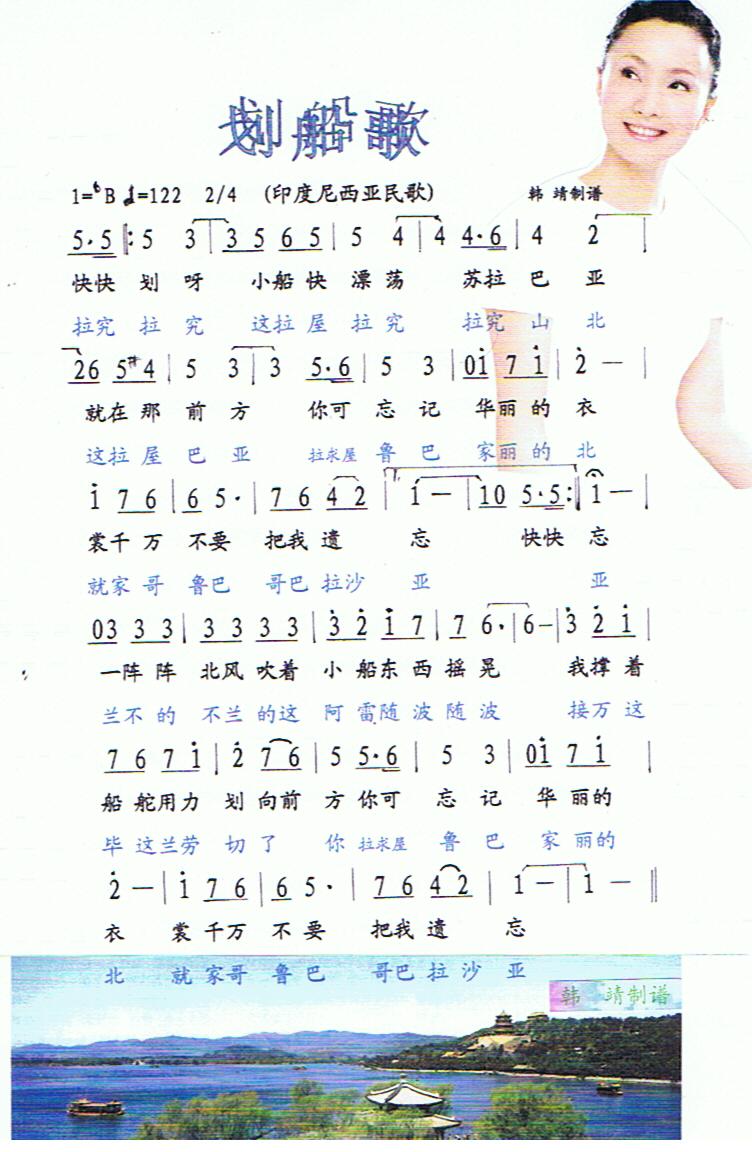 划船歌
1=♭B ♩=122 2/4 (印度尼西亚民歌) 韩 靖制谱
5·5 ‖: 5 3 | 3 5 6 5 | 5 4 | 4 4·6 | 4 2 |
快快 划 呀 小船 快 漂 荡 苏拉 巴 亚
拉究 拉 究 这拉 屋 拉 究 拉究 山 北
26 5# 4 | 5 3 | 3 5·6 | 5 3 | 0i 7 i | 2̇ — |
就在 那 前 方 你可 忘 记 华丽 的 衣
这拉 屋 巴 亚 拉求屋 鲁 巴 家丽 的 北
i 7 6 | 6 5· | 7 6 4 2 | 1 — | 10 5·5 :‖ i — |
裳千 万 不要 把我 遗 忘 快快 忘
就家 哥 鲁巴 哥巴 拉沙 亚 亚
03 3 3 | 3 3 3 3 | 3̇ 2̇ i 7 | 7 6· | 6— | 3̇ 2̇ i |
一阵 阵 北风 吹着 小 船东 西 摇 晃 我撑 着
兰不 的 不兰 的这 阿 雷随 波 随 波 接万 这
7 6 7 i | 2̇ 7 6 | 5 5·6 | 5 3 | 0i 7 i |
船 舵用 力 划 向前 方 你可 忘 记 华 丽的
毕 这兰劳 切 了 你 拉求屋 鲁 巴 家 丽的
2̇ — | i 7 6 | 6 5· | 7 6 4 2 | 1 — | 1 — ‖
衣 裳 千万 不 要 把我 遗 忘
北 就 家哥 鲁 巴 哥巴 拉 沙 亚
韩 靖制谱